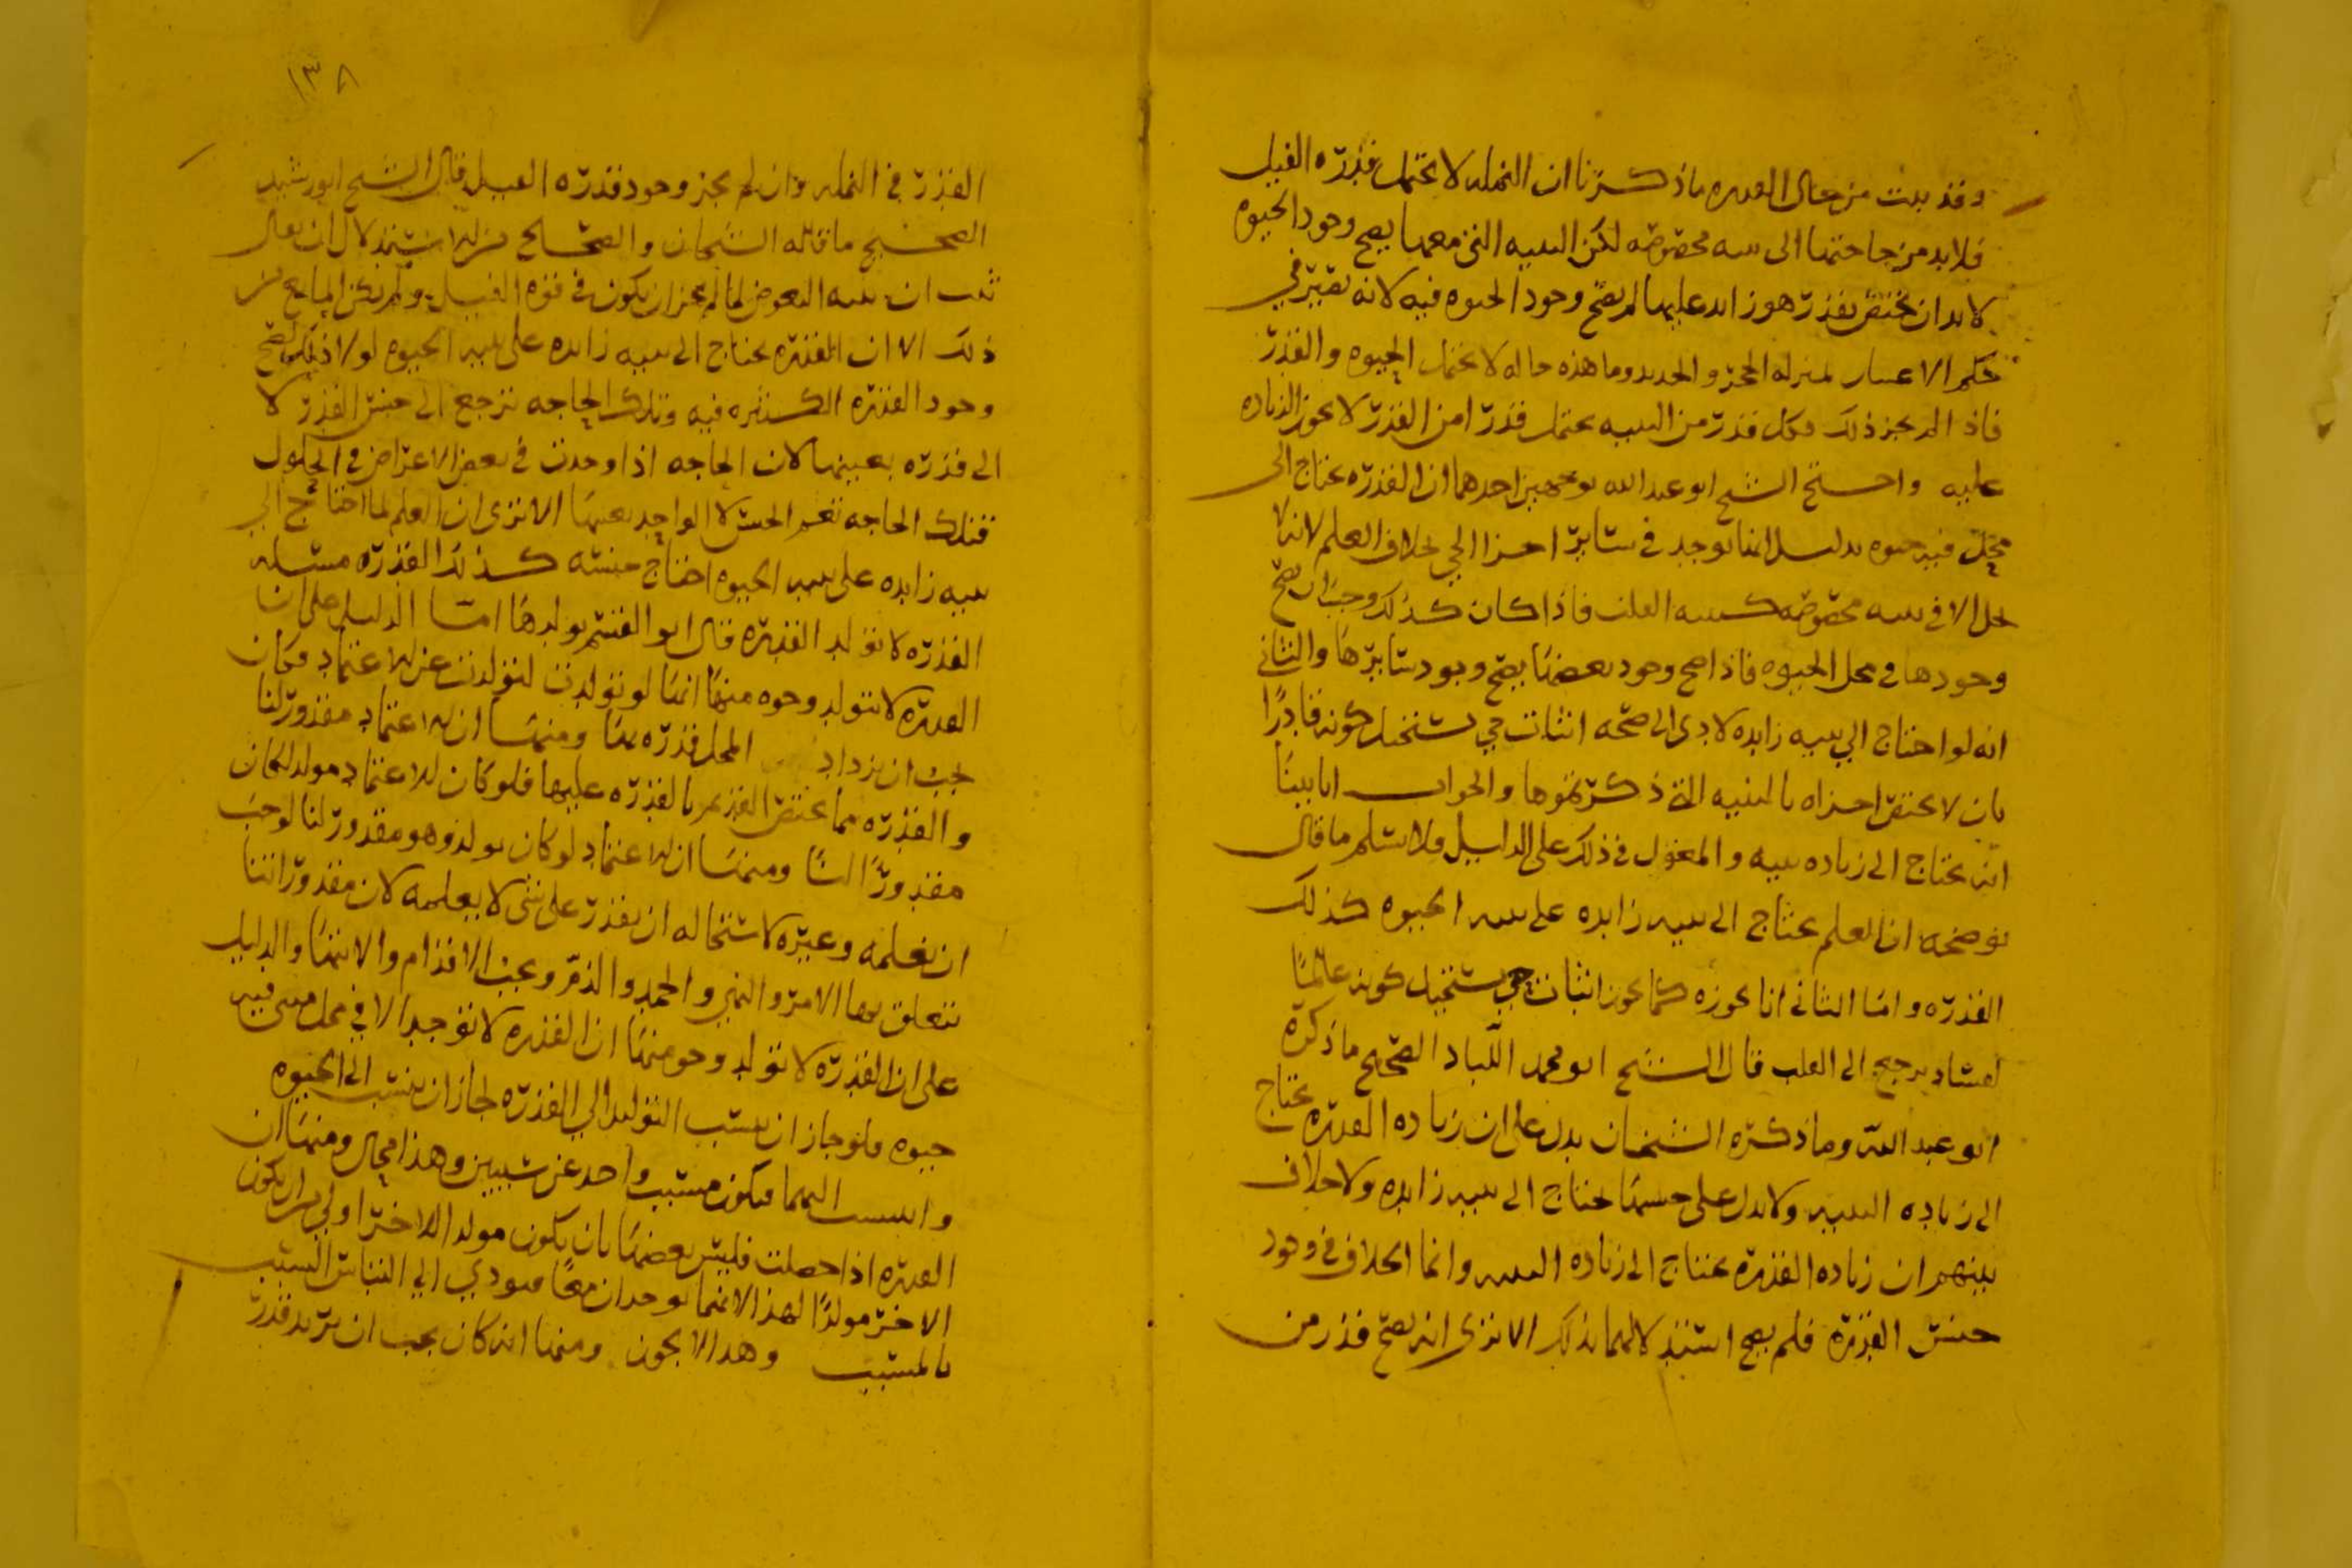 وقد بينت من حال القدره ما ذكرنا ان النمله لا تحتمل قدره الفيل
فلا بد من حاجتها الى بنيه مخصوصه لكن البنيه التي معها يصح وجود الحيوه
لا بد ان تختص بقدر هو زايد عليها لم يصح وجود الحيوه فيه لانه يصير في
حكم الاعتبار بمنزله الحجر والحديد وما هذه حاله لا تحتمل الحيوه والقدر
فاذا لم يجز ذلك فكل قدر من البنيه يحتمل قدرا من القدر لا يجوز الزياده
عليه واحتج الشيخ ابو عبد الله بوجهين احدهما ان القدره تحتاج الى
محل فيه حيوه بدليل انها توجد في ساير اجزا الحي بخلاف العلم لانه لا
يحل الا في بنيه مخصوصه كبنيه القلب فاذا كان كذلك وجب ان يصح
وجودها في محل الحيوه فاذا صح وجود بعضها يصح وجود سايرها والثاني
انه لو احتاج الى بنيه زايده لادى الى صحه اثبات حي يستحيل كونه قادرًا
بان لا يختص اجزاه بالبنيه التي ذكرتموها والجواب انا بينا
انه يحتاج الى زياده بنيه والمعول في ذلك على الدليل ولا نسلم ما قال
يوضحه ان العلم يحتاج الى بنيه زايده على بنيه الحيوه كذلك
القدره واما الثاني انا نجوزه كما يجوز اثبات حي يستحيل كونه عالمًا
لفساد يرجع الى القلب قال الشيخ ابو محمد اللباد الصحيح ما ذكره
ابو عبد الله وما ذكره الشيخان يدل على ان زياده القدره تحتاج
الى زياده البنيه ولا يدل على جنسها تحتاج الى بنيه زايده ولا خلاف
بينهم ان زياده القدره تحتاج الى زياده البنيه وانما الخلاف في وجود
جنس القدره فلم يصح استدلالهما بذلك الا ترى انه يصح قدر من
١٣٨
القدر في النمله وان لم يجز وجود قدره الفيل قال الشيخ ابو رشيد
الصحيح ما قاله الشيخان والصحيح من الاستدلال ان يقال
ثبت ان بنيه البعوض لما لم يجز ان يكون في قوه الفيل ولم يكن المانع من
ذلك الا ان القدره تحتاج الى بنيه زايده على بنيه الحيوه لولا ذلك لصح
وجود القدره الكثيره فيه وتلك الحاجه ترجع الى جنس القدر لا
الى قدره بعينها لان الحاجه اذا وجدت في بعض الاعراض في الحلول
فتلك الحاجه تعم الجنس لا الواحد بعينها الا ترى ان العلم لما احتاج الى
بنيه زايده على بنيه الحيوه احتاج جنسه كذلك القدره مسئله
القدره لا تولد القدره قال ابو القسم يولدها اما الدليل على ان
القدره لا تتولد وجوه منها انها لو تولدت لتولدت عن الاعتماد فكان
يجب ان يزداد المحل قدره بها ومنها ان الاعتماد مقدور لنا
والقدره مما يختص القديم بالقدره عليها فلو كان للاعتماد مولد لكان
مقدورًا لنا ومنها ان الاعتماد لو كان يولد وهو مقدور لنا لوجب
ان نعلمه وغيره لاستحاله ان يقدر على شي لا يعلمه لان مقدوراتنا
تتعلق بها الامر والنهي والحمد والذم ويجب الاقدام والانتها والدليل
على ان القدره لا تولد وجوه منها ان القدره لا توجد الا في محل فيه
حيوه فلو جاز ان ينسب التوليد الى القدره لجاز ان ينسب الى الحيوه
والنسب اليهما فيكون مسبب واحد عن سببين وهذا محال ومنها ان
القدره اذا حصلت فليس بعضها بان يكون مولدا للاخر اولى من ان يكون
الاخر مولدًا لهذا لانهما يوجدان معًا فيودي الى التباس السبب
بالمسبب وهذا لا يجوز ومنها انه كان يجب ان يزيد قدر